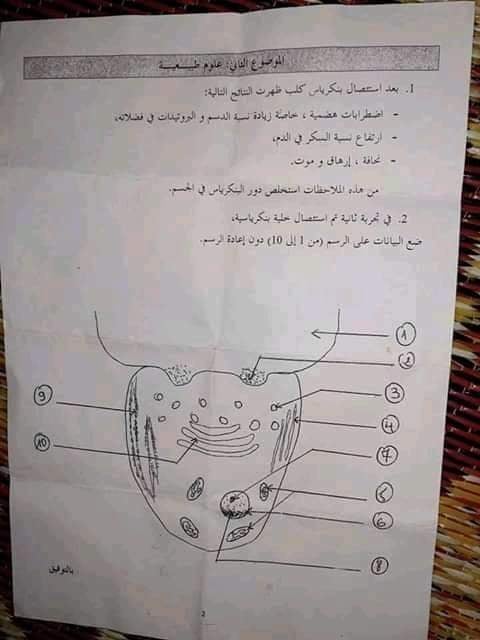 الموضوع الثاني: علوم طبيعية
1. بعد استئصال بنكرياس كلب ظهرت النتائج التالية:
- اضطرابات هضمية ، خاصّة زيادة نسبة الدسم و البروتيدات في فضلاته،
- ارتفاع نسبة السكر في الدم،
- نحافة ، إرهاق و موت.
من هذه الملاحظات استخلص دور البنكرياس في الجسم.
2. في تجربة ثانية تم استئصال خلية بنكرياسية،
ضع البيانات على الرسم (من 1 إلى 10) دون إعادة الرسم.
1
2
9
3
4
10
7
5
6
8
بالتوفيق
2